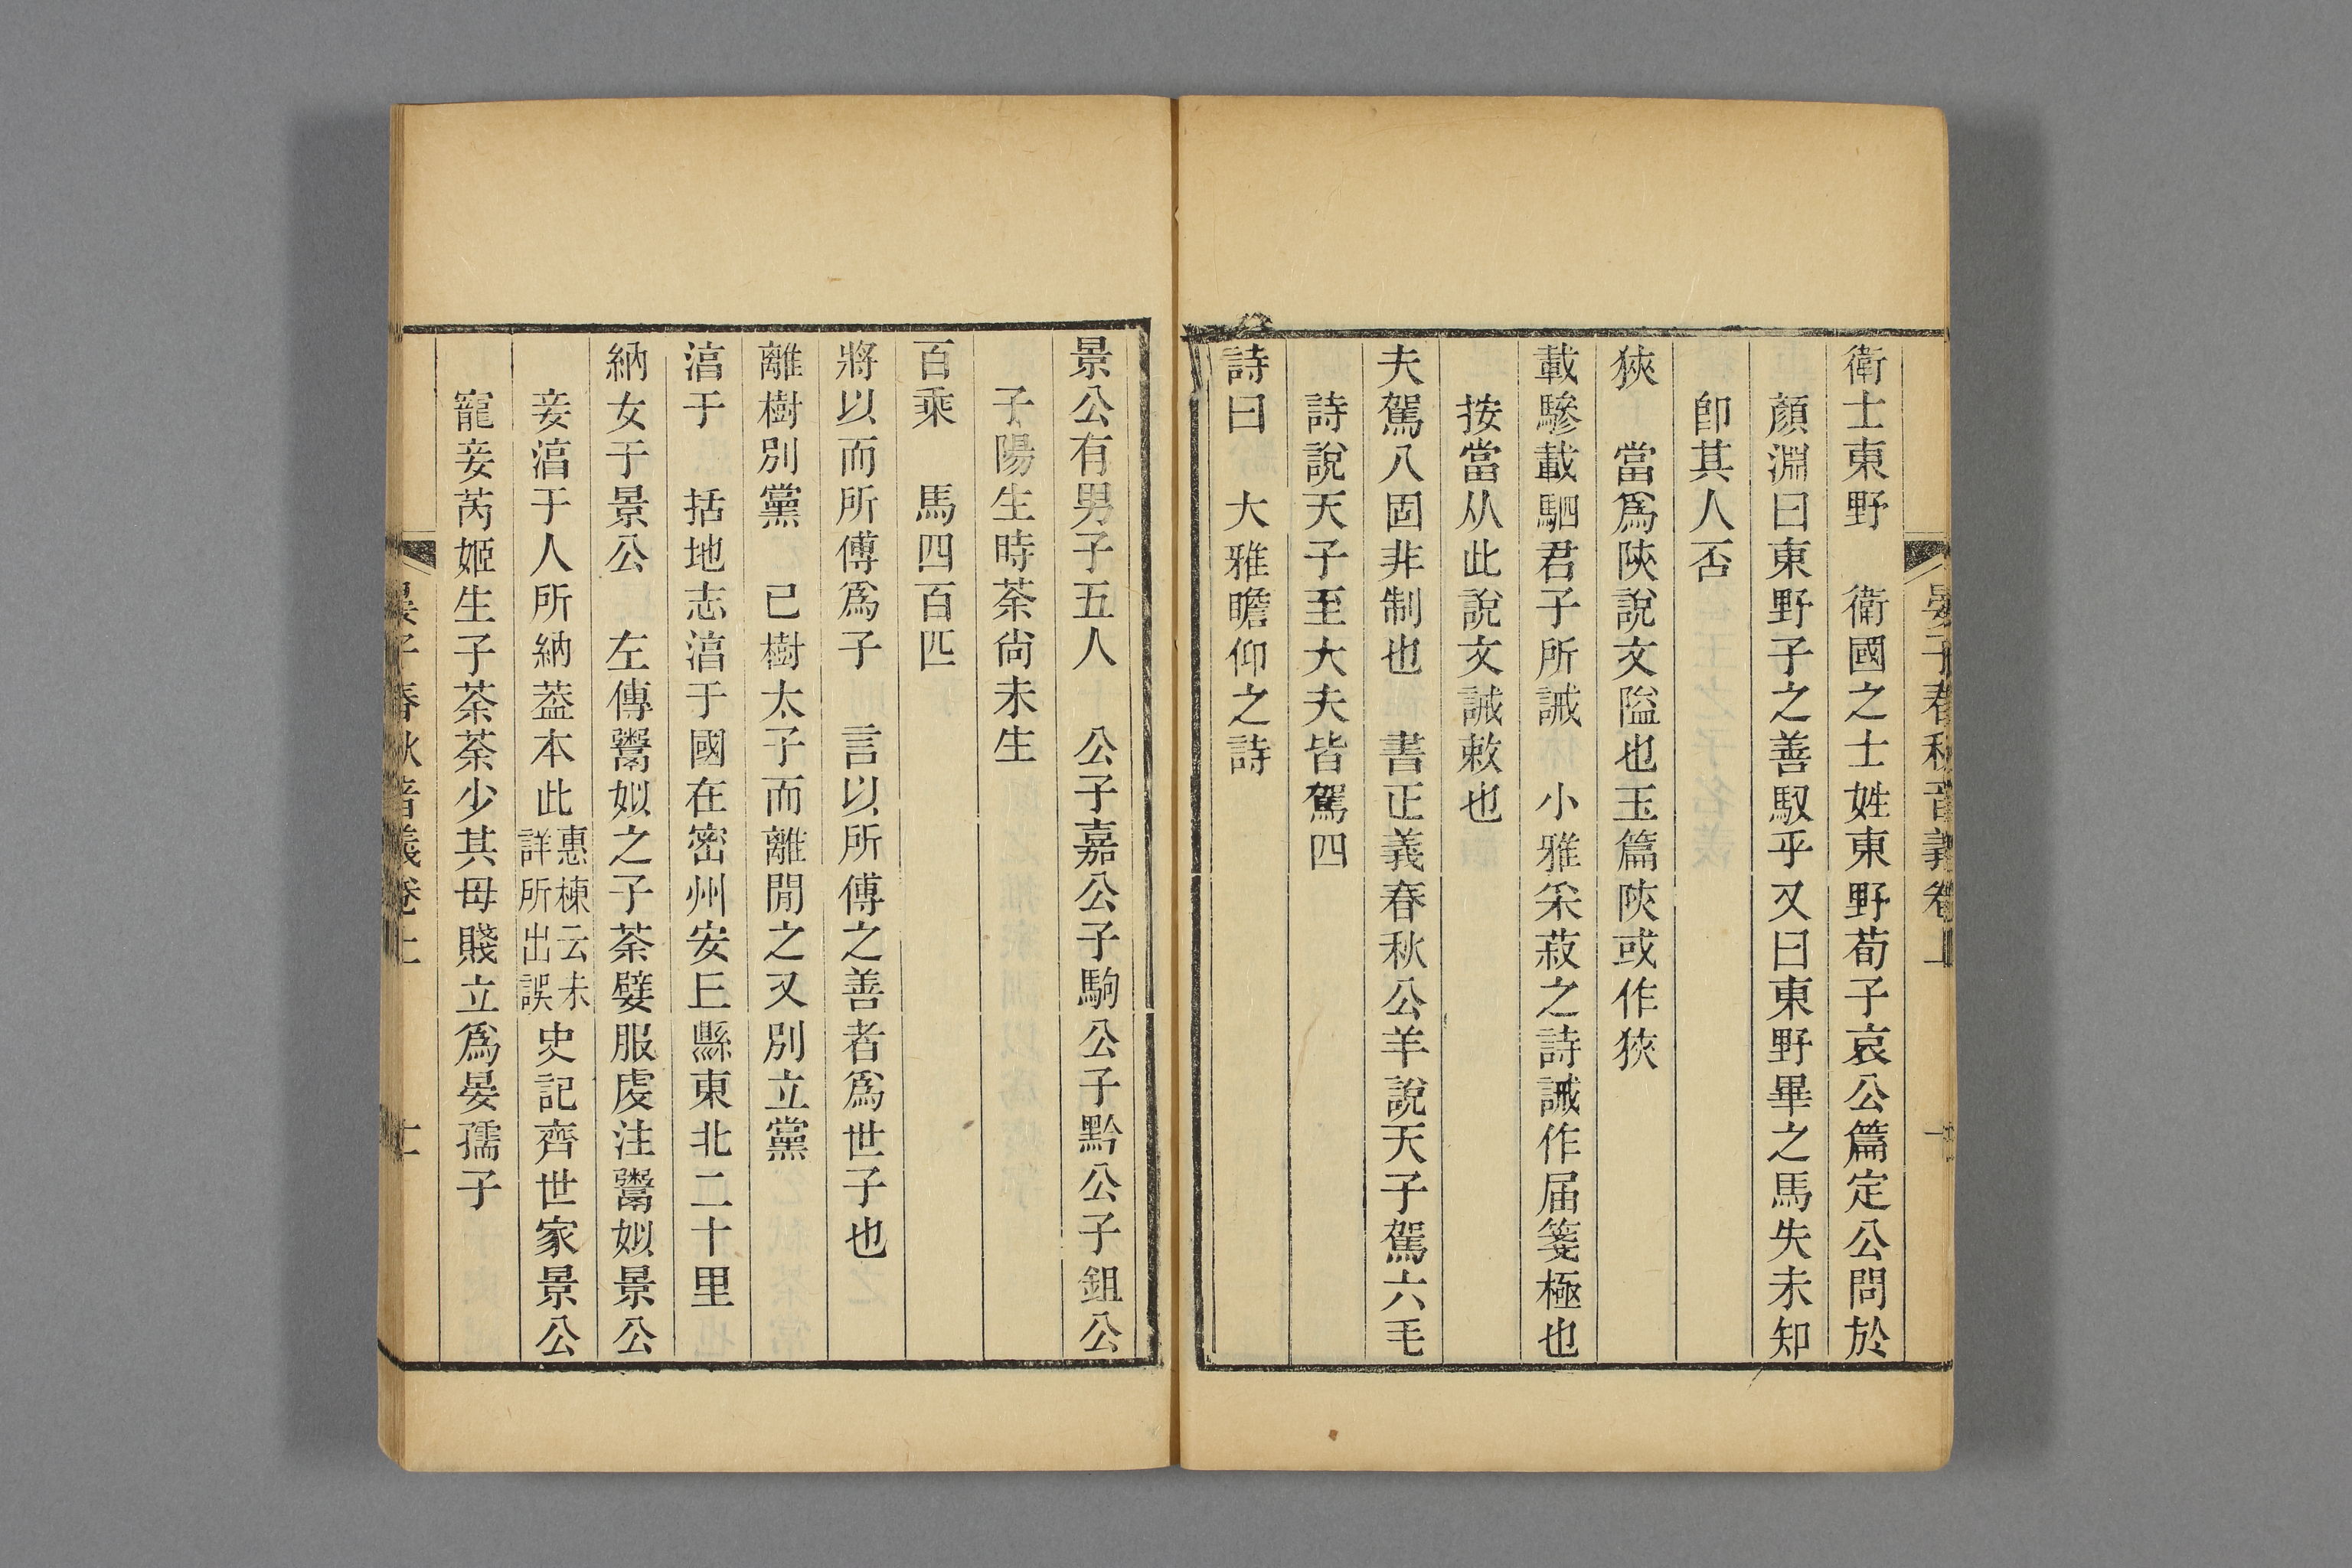 晏子春秋音義卷上
衛士東野　衛國之士姓東野荀子哀公篇定公問於
顏淵曰東野子之善馭乎又曰東野畢之馬失未知
卽其人否
狹　當爲陜說文隘也玉篇陜或作狹
載驂載駟君子所誡　小雅采菽之詩誡作届箋極也
按當从此說文誡敕也
夫駕八固非制也　書正義春秋公羊說天子駕六毛
詩說天子至大夫皆駕四
詩曰　大雅瞻仰之詩
景公有男子五人　公子嘉公子駒公子黔公子鉏公
子陽生時荼尙未生
百乘　馬四百匹
將以而所傅爲子　言以所傅之善者爲世子也
離樹別黨　已樹太子而離閒之又別立黨
湻于　括地志湻于國在密州安丘縣東北二十里
納女于景公　左傳鬻姒之子荼嬖服虔注鬻姒景公
妾湻于人所納葢本此惠棟云未詳所出誤史記齊世家景公
寵妾芮姬生子荼荼少其母賤立爲晏孺子
晏子春秋音義卷上